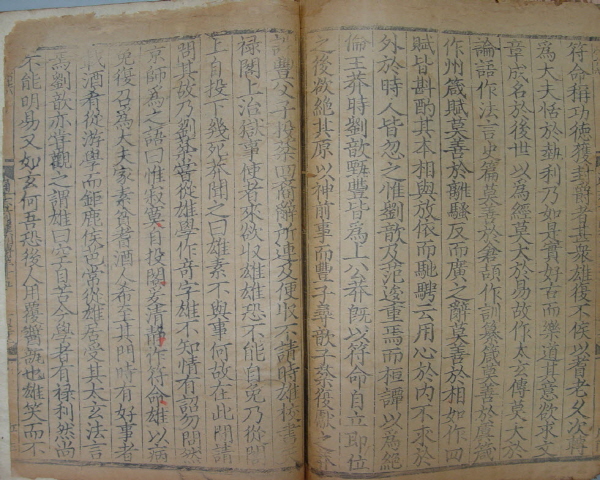 符命稱功德獲封爵者甚衆雄復不侯以耆老久次轉
爲大夫恬於勢利乃如是實好古而樂道其意欲求文
章成名於後世以為經莫大於易故作太玄傳莫大於
論語作法言史篇莫善於倉頡作訓纂箴莫善於虞箴
作州箴賦莫善於離騷反而廣之辭莫善於相如作四
賦皆斟酌其本相與放依而馳騁云用心於內不求於
外於時人皆忽之惟劉歆及范逡重焉而桓譚以為絕
倫王莽時劉歆甄豐皆為上公莽旣以符命自立即位
之後欲絕其原以神前事而豐子尋歆子棻復獻之
豐父子投棻四裔辭所連及便收不請時雄校書
祿閣上治獄事使者來欲收雄雄恐不能自免乃從閣
上自投下幾死莽聞之曰雄素不與事何故在此間請
問其故乃劉棻嘗從雄學作奇字雄不知情有詔勿問然
京師為之語曰惟寂寞自投閣爰清靜作符命雄以病
免復召為大夫家素貧耆酒人希至其門時有好事者
載酒肴從游學而鉅鹿侯芭常從雄居受其太玄法言
焉劉歆亦嘗觀之謂雄曰空自苦今學者有祿利然尚
不能明易又如玄何吾恐後人用覆醬瓿也雄笑而不